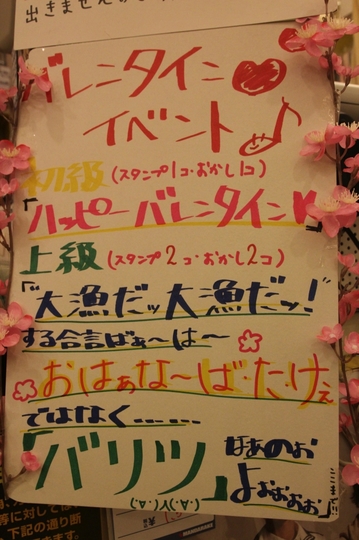 出きません
バレンタイン♥
イベント♪
初級(スタンプ1コ・おかし1コ)
「ハッピーバレンタイン♥
上級(スタンプ2コ・おかし2コ)
「大漁だッ大漁だッ!
する合言ばぁ〜は〜
おはぁな〜ば・た・けぇ
ではなく……
「バリツ」なぁのぉ
よぉぉぉぉ!
下記の通り断